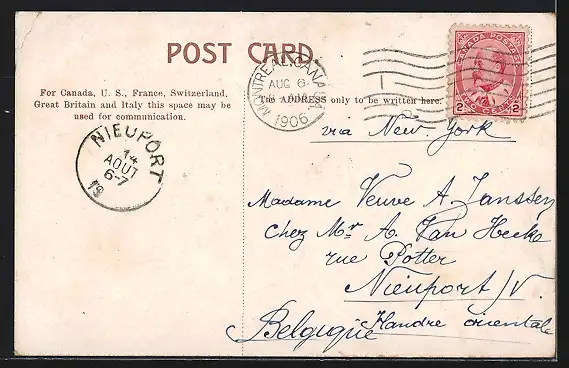 POST CARD.
For Canada, U. S., France, Switzerland,
Great Britain and Italy this space may be
used for communication.
MONTREAL, CANADA
AUG 6
1906
CANADA POSTAGE
2 2
The ADDRESS only to be written here.
NIEUPORT
14
AOUT
6-7
19
via New York
Madame Veuve A. Janssen
Chez Mr A. Van Hecke
rue Potter
Nieuport/V.
Belgique Flandre orientale